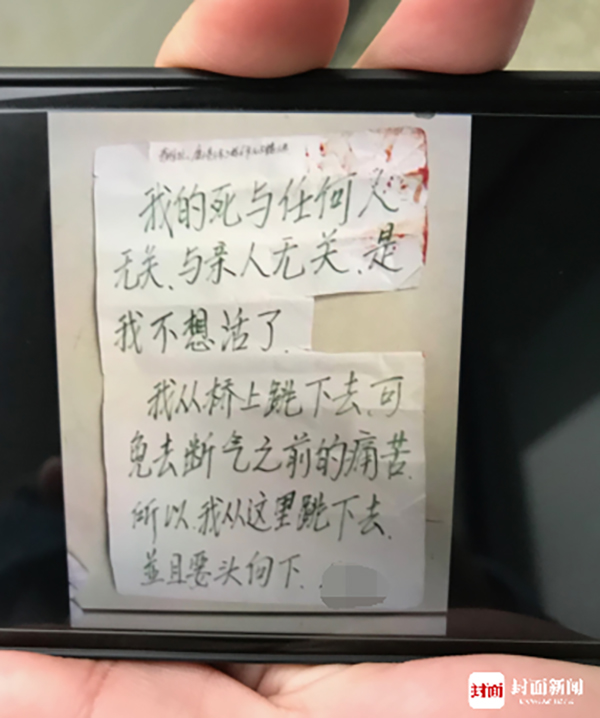 我的死与任何人
无关、与亲人无关、是
我不想活了、
我从桥上跳下去、可
免去断气之前的痛苦、
所以、我从这里跳下去、
並且要头向下、
封面 封面新闻